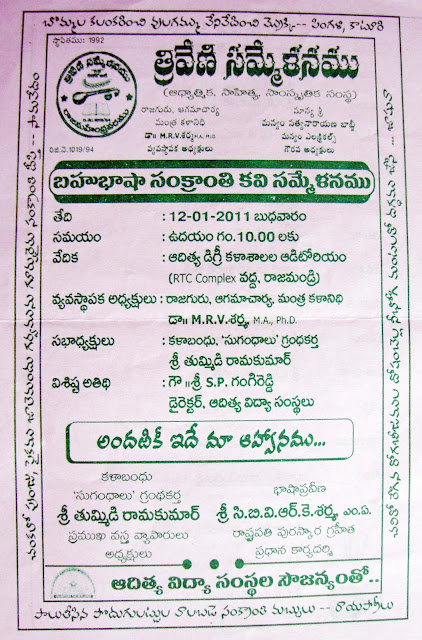 బొమ్మల కలంకరించి వులగమ్ము వేనివేపించి మొక్కి-- పింగళి, కాటూరి
స్థాపితము: 1992
త్రివేణి సమ్మేళనము
రాజమహేంద్రవరము
రిజి.నె.1019/94
త్రివేణి సమ్మేళనము
(ఆధ్యాత్మిక, సాహిత్య, సాంస్కృతిక సంస్థ)
రాజగురు, ఆగమాచార్య
మంత్ర కళానిధి
డా॥ M.R.V.శర్మ M.A., Ph.D.
వ్యవస్థాపక అధ్యక్షులు
మాన్య శ్రీ
మన్యం సత్యనారాయణ బాబ్జీ
మన్యం ఎలక్ట్రికల్స్
గౌరవ అధ్యక్షులు
బహుభాషా సంక్రాంతి కవి సమ్మేళనము
తేది : 12-01-2011 బుధవారం
సమయం : ఉదయం గం.10.00 లకు
వేదిక : ఆదిత్య డిగ్రీ కళాశాలల ఆడిటోరియం
(RTC Complex వద్ద, రాజమండ్రి)
వ్యవస్థాపక అధ్యక్షులు : రాజగురు, ఆగమాచార్య, మంత్ర కళానిధి
డా॥ M.R.V.శర్మ, M.A., Ph.D.
సభాధ్యక్షులు : కళాబంధు, 'సుగంధాలు' గ్రంథకర్త
శ్రీ తుమ్మిడి రామకుమార్
విశిష్ట అతిథి : గౌ॥శ్రీ S.P. గంగిరెడ్డి
డైరెక్టర్, ఆదిత్య విద్యా సంస్థలు
అందటికీ ఇదే మా ఆహ్వానము...
కళాబంధు
'సుగంధాలు' గ్రంథకర్త
శ్రీ తుమ్మిడి రామకుమార్
ప్రముఖ వస్త్ర వ్యాపారులు
అధ్యక్షులు
భాషాప్రవీణ
శ్రీ సి.బి.వి.ఆర్.కె.శర్మ, ఎం.ఏ.
రాష్ట్రపతి పురస్కార గ్రహీత
ప్రధాన కార్యదర్శి
ఆదిత్య విద్యా సంస్థల సౌజన్యంతో..